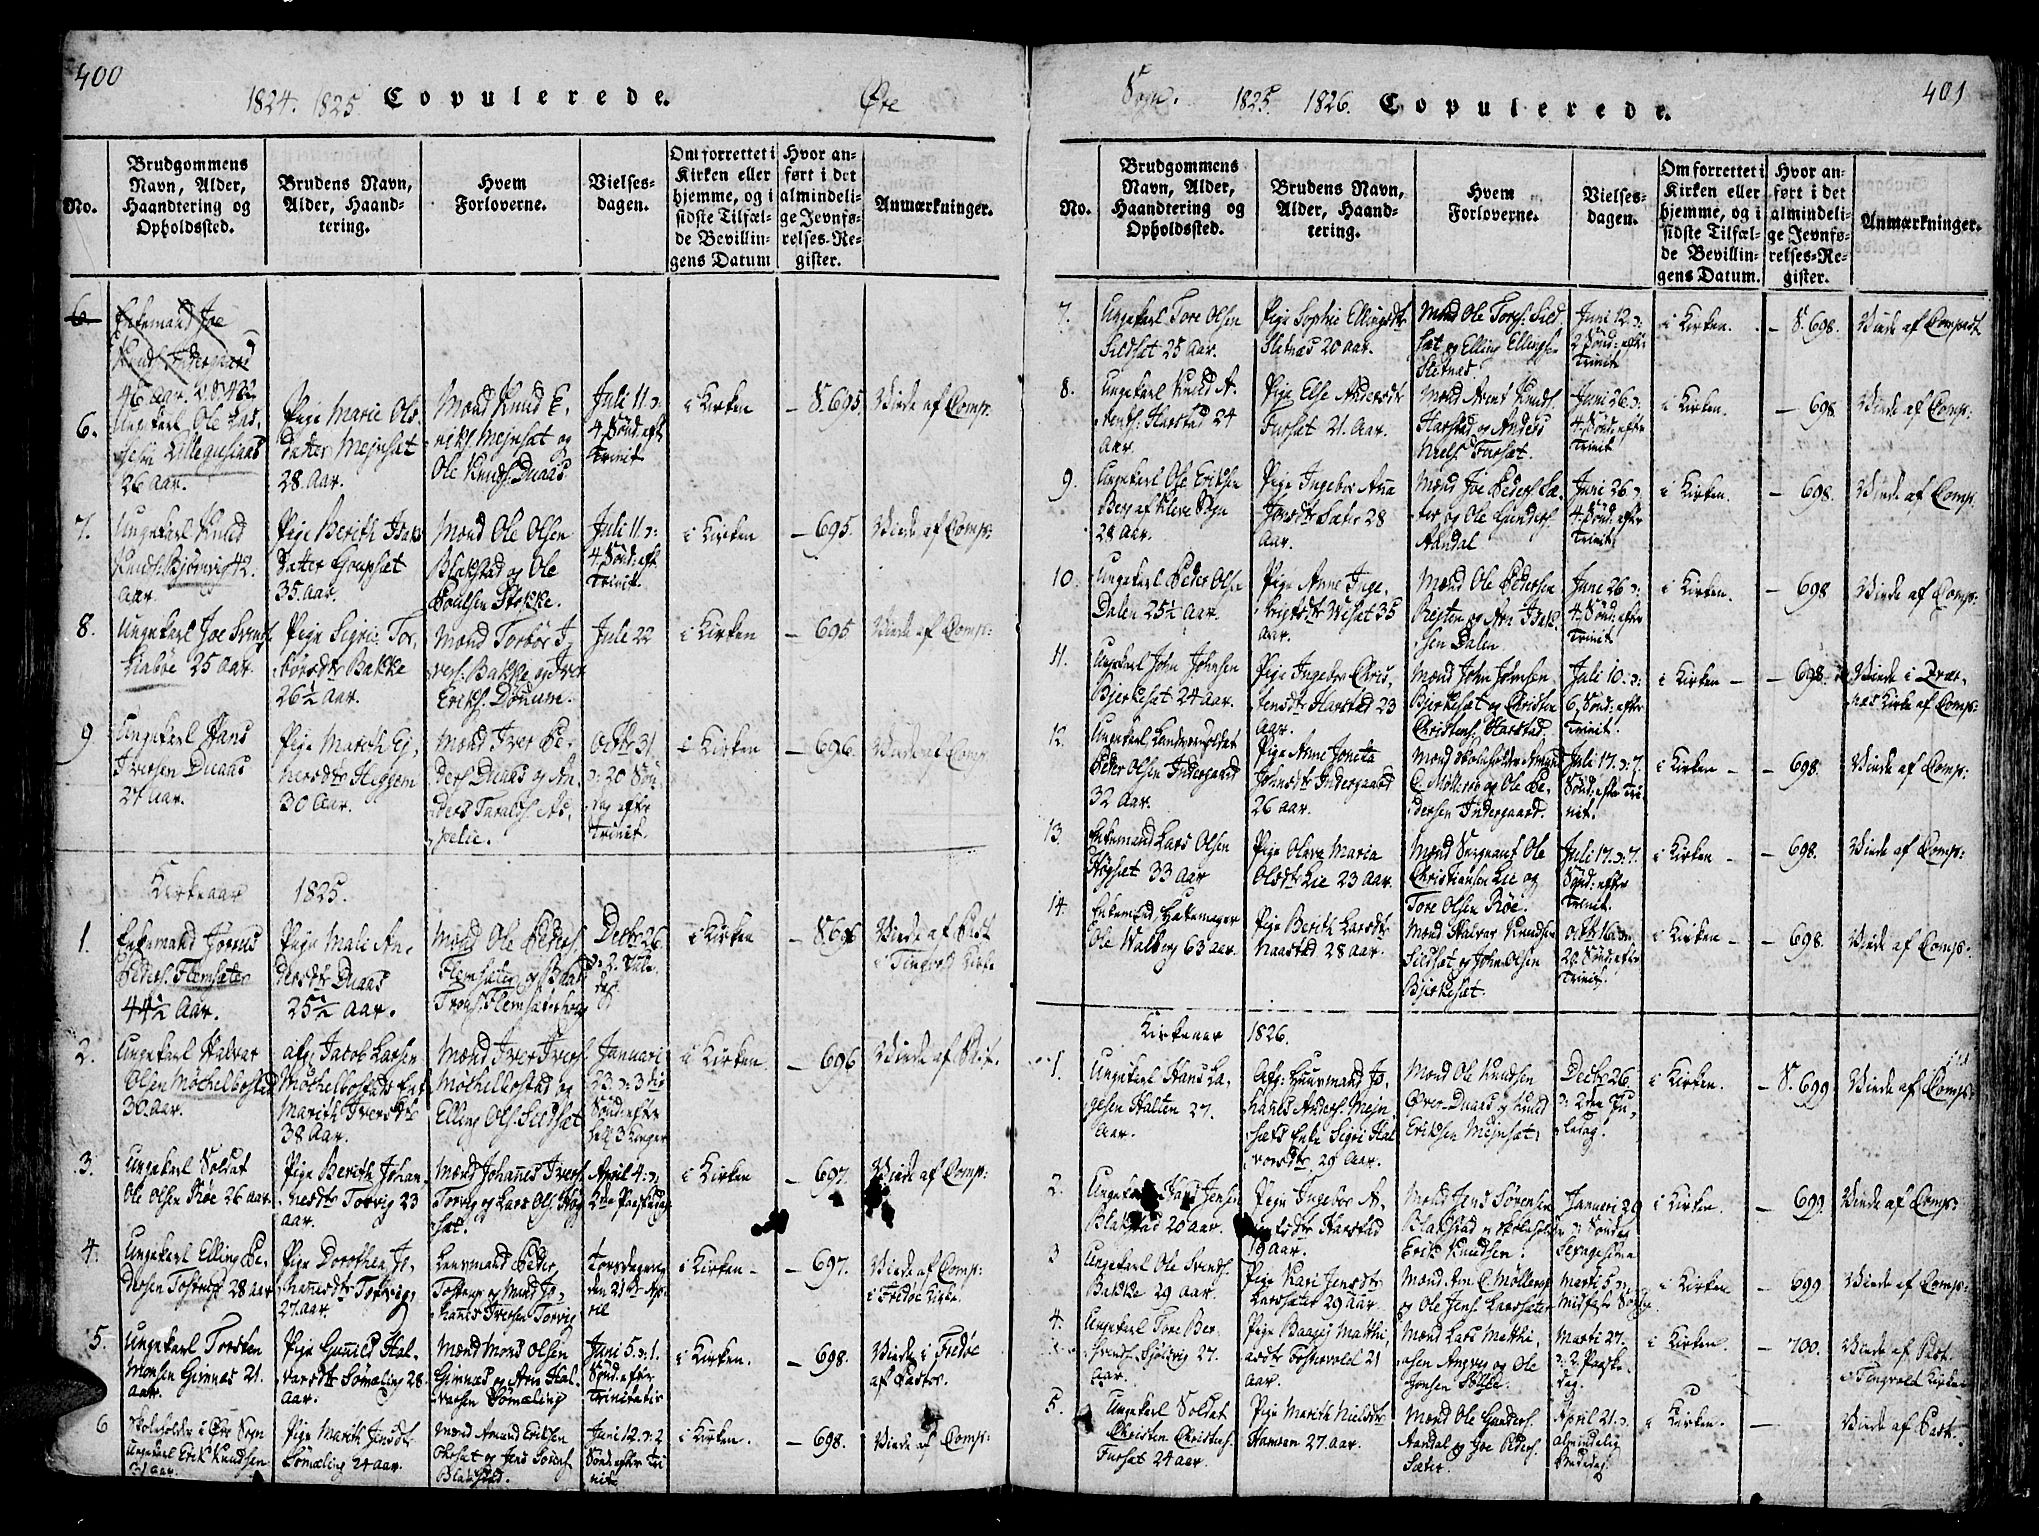 400
1824. 1825 Copulerede. Øre
No.
Brudgommens Navn, Alder, Haandtering og Opholdssted.
Brudens Navn, Alder, Haandtering.
Hvem Forloverne.
Vielsesdagen.
Om forrettet i Kirken eller hjemme, og i sidste Tilfælde Bevillingens Datum
Hvor anført i det almindelige Jevnførelses-Register.
Anmærkninger.
6.
Enkemand Joe
46 aar.
6.
Ungekarl Ole
26 Aar.
Pige Marie Ols
datter Mejnset
28. Aar.
Mænd Knud E.
riks. Mejnset og
Ole Knuds. Duaas
Juli 11 ɔ:
4 Sønd: eft
Trinit
i Kirken
— S. 695
Viede af Comp.
7.
Ungekarl Knud
Knuds. Bjørnvig 42.
aar.
Pige Berith
Datter
35. aar.
Mænd Ole Olsen
Blakstad og Ole
Poulsen Stokke.
Juli 11 ɔ:
4 Sønd: eft
Trinit
i Kirken
— 695.
Viede af Comp:
8.
Ungekarl Joe
25 Aar.
Pige Sigri Tor
børsdtr Bakke
26½ Aar.
Mænd Torbør I
vers. Bakke og Iver
Eriks. Dønnem.
Juli 22
i Kirken
— 695
Viede af Comp:
9
Ungekarl Hans
Iversen Duaas
27 Aar.
Pige Marith Ej
nersdtr Heggem
30 Aar.
Mænd Iver Pe
ders. Duaas og An
ders Taralds. As
pelie.
Octbr 31
ɔ: 20 Søn
dag efter
Trinit.
i Kirken
— 696.
Viede af Comp
Kirkeaar 1825.
1.
Enkemand
Peders. Flemsæter
44½ Aar.
Pige Mali An
dersdtr Duaas
25½ Aar.
Mænd Ole Peders.
Flemsæter og
Decbr 26
ɔ: 2. Jule
dag
i Kirken
— S. 696
Viede af
i Tingvold Kirke
2.
Ungekarl Halvar
Olsen Møchelbostad
30 Aar.
afg: Jacob Larsen
Møchelbostads
Marith Iversdtr
38 Aar.
Mænd Iver Ivers.
Møchelbostad og
Elling Ols. Sildset
Januari
23. ɔ: 3 die
Sønd: efter
hell 3 Konger
i Kirken
— 696
Viede af
3.
Ungekarl Soldat
Ole Olsen Røe 26 aar
Pige Berith Johan
nesdtr Torvig 23
aar.
Mænd Johannes Ivers.
Torvig og Lars Ols. Høg
set.
April 4. ɔ:
2den Paaskedag
i Kirken
— 697.
Viede af Comp:
4.
Ungekarl Elling Pe
dersen 28 aar
Pige Dorothea Jo
hannesdtr Torvig
27. aar.
Leensmand Peder
og Mænd Jo
hannes Iversen Torvig
Torsdagen
den 21de Ap
ril
i Kirken —
— 697.
Viede af Comp:
i Fredøe Kirke.
5.
Ungekarl Torsten
Monsen Gimnæs 21.
aar.
Pige Gunild Hal
varsdtr Sømeling 28.
aar.
Mænd Mons Olsen
Gimnæs og Arn Hal
vorsen Sømeling
Juni 5. ɔ: 1.
Sønd: efter
Trinitatis
i Kirken.
— 698.
Viede i Fredøe
af Pastor.
6
Skoleholder i Øre Sogn
Ungekarl Erik Knudsen
31 Aar.
Pige Marith Jensdtr
Sømeling 24 aar.
Mænd Amund Eriksen
og Jens Sørens.
Blakstad.
Juni 12. ɔ: 2
Sønd: efter Tri
nit.
i Kirken.
— 698.
Viede af Comp:
Sogn. 1825 1826. Copulerede. 401
No.
Brudgommens Navn, Alder, Haandtering og Opholdssted.
Brudens Navn, Alder, Haandtering.
Hvem Forloverne.
Vielsesdagen.
Om forrettet i Kirken eller hjemme, og i sidste Tilfælde Bevillingens Datum.
Hvor anført i det almindelige Jevnførelses-Register.
Anmærkninger.
7.
Ungekarl Tore Olsen
Sildset 25 Aar.
Pige Sophie Ellingsdtr
Sletnæs 20 aar.
Mænd Ole Tors. Sild
set og Elling Ellings.
Sletnæs
Juni 12. ɔ:
2 Sønd: eft
Trinit
i Kirken.
— S. 698.
Viede af Compst
8.
Ungekarl Knud A
rents. Harstad 24
aar.
Pige Else Andersdtr
Furset 21. Aar.
Mænd Arent Knuds
Harstad og Anders
Niels. Furset.
Juni 26. ɔ:
4. Sønd: efter
Trinit
i Kirken.
— 698
Viede af Comp:
9.
Ungekarl Ole Eriksen
Berg af Kleve Sogn
28 Aar.
Pige Ingebor Ana
Joesdtr Sæter 28
Aar.
Mænd Joe Peders. Sæ
ter og Ole Gunders.
Aandal
Juni 26 ɔ:
4. Sønd: efter
Trinit:
i Kirken.
— 698.
Viede af Comp.
10.
Ungekarl Peder Olse
Dalen 25½ Aar.
Pige Anne Inge
brigtsdtr Weset 35
aar.
Mænd Ole Pedersen
Rejsten og Arn Isak
sen Dalen
Juni 26 ɔ:
4. Sønd: efter
Trinit
i Kirken.
— 698
Viede af Comp:
11.
Ungekarl John Johnsen
Bjerkeset 24 Aar.
Pige Ingebor Chris
tensdtr Harstad 23
aar.
Mænd John Johnsen
Bjerkeset og Christen
Christens. Harstad.
Juli 10. ɔ:
6 Sønd: efter
Trinit.
i Kirken —
— 698.
Viede i
næs Kirke af Comp:
12.
Ungekarl Landværnsoldat
Peder Olsen Indergaard
32 Aar.
Pige Anne Joneta
Johnsdtr Indergaard
26 aar.
Mænd Skoleholder Amund
C. Møllerop og Ole Pe
dersen Indergaard.
Juli 17. ɔ: 7.
Sønd: efter Tri
nit.
i Kirken —
— 698.
Viede af Comp:
13.
Enkemand Lars Olsen
Høgset 33 Aar
Pige Olava Maria
Olsdtr Lie 23 Aar.
Mænd Sergeant Ole
Christiansen Lie og
Tore Olsen Røe.
Juli 17. ɔ: 7.
Sønd: efter
Trinit.
i Kirken —
— 698.
Viede af Comp:
14.
Enkemand, Hatemager
Ole Walberg 63 aar.
Pige Berith Larsdtr
Naastad 28 aar.
Mænd Halvar Knudsen
Sildset og John Olsen
Bjerkeset.
Octbr 16. ɔ:
20. Sønd: efter
Trinit.
i Kirken —
— 698.
Viede af Comp:
Kirkeaar 1826.
1.
Ungekarl Hans La
gesen Halten 27.
Aar.
Afg: Huusmand Jo
hannes Anders. Mejn
sets Enke Sigri Hal
vorsdtr 29 Aar.
Mænd Ole Knudsen
Øver-Duaas og Knud
Eriksen Mejnset.
Decbr 26.
ɔ: 2den Ju
ledag.
i Kirken.
— S. 699
Viede af Comp:
2.
Ungekarl Jens.
Blakstad 20 aar.
Pige Ingebor A
rentsdtr Harstad
19 aar.
Mænd Jens Sørensen
Blakstad og Skoleholder
Erik Knudsen.
Januari 29
ɔ: Søndag
Sexagesima
i Kirken.
— 699.
Viede af Comp:
3
Ungekarl Ole Svends.
Bakke 29 Aar.
Pige Kari Jensdtr
Larssæter 29 aar.
Mænd Arn C. Møllerop
og Ole Jens. Larssæter
Marti 5 ɔ:
Midfaste Søndag
i Kirken.
— 699
Viede af Comp:
4.
Ungekarl Tore Ber
Sjølsvig 27.
Aar.
Pige Matthi
asdtr Fostervold 21
aar.
Mænd Lars Matthi
asen Angvig og Ole
Jonsen
Marti 27.
ɔ: 2. Paaske
dag.
i Kirken.
— 700.
Viede af Past.
i Tingvold Kirken
5.
Ungekarl Soldat
Christen Christens.
Furset 24 Aar
Pige Marith Nielsdtr
Hansen 27. aar.
Mænd Ole Gunders.
Aandal og Joe Peders.
Sæter.
April 21. ɔ:
Almindelig
Bededag.
i Kirken.
—
Viede af Past.